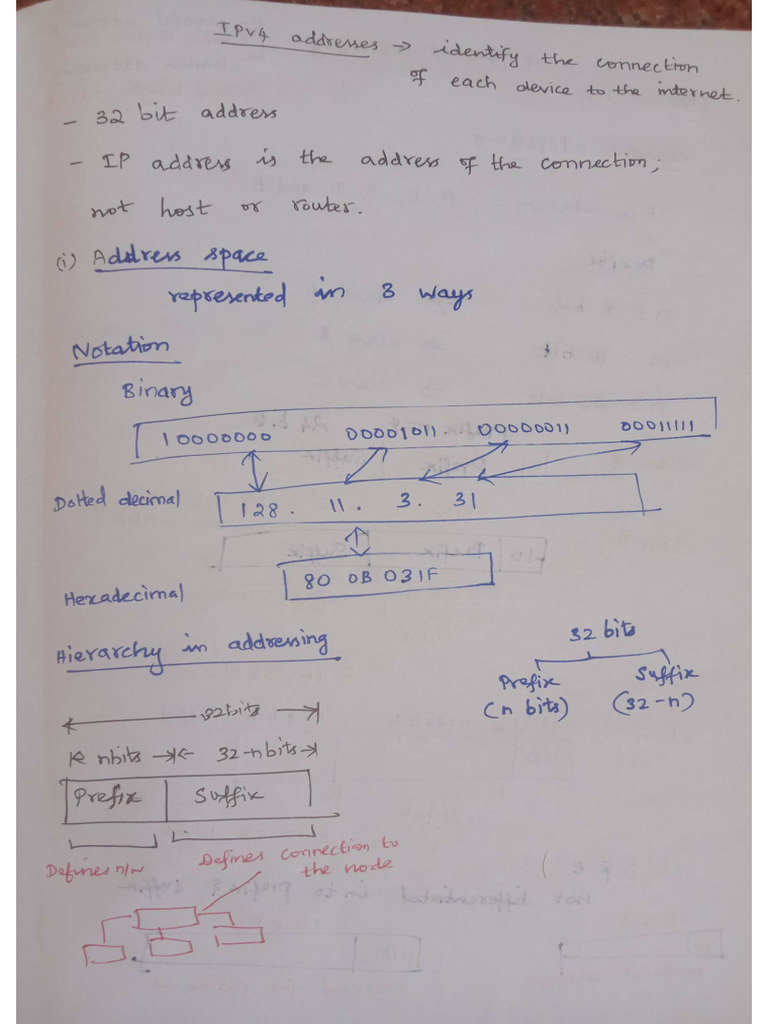 IPv4 addresses → identify the connection
of each device to the internet.
- 32 bit address
- IP address is the address of the connection;
not host or router.
(i) Address space
represented in 3 ways
Notation
Binary
10000000 00001011 00000011 00011111
Dotted decimal
128. 11. 3. 31
80 0B 031F
Hexadecimal
Hierarchy in addressing
32 bits
Prefix Suffix
(n bits) (32-n)
32bits
n bits 32-n bits
Prefix Suffix
Defines n/w Defines connection to
the node